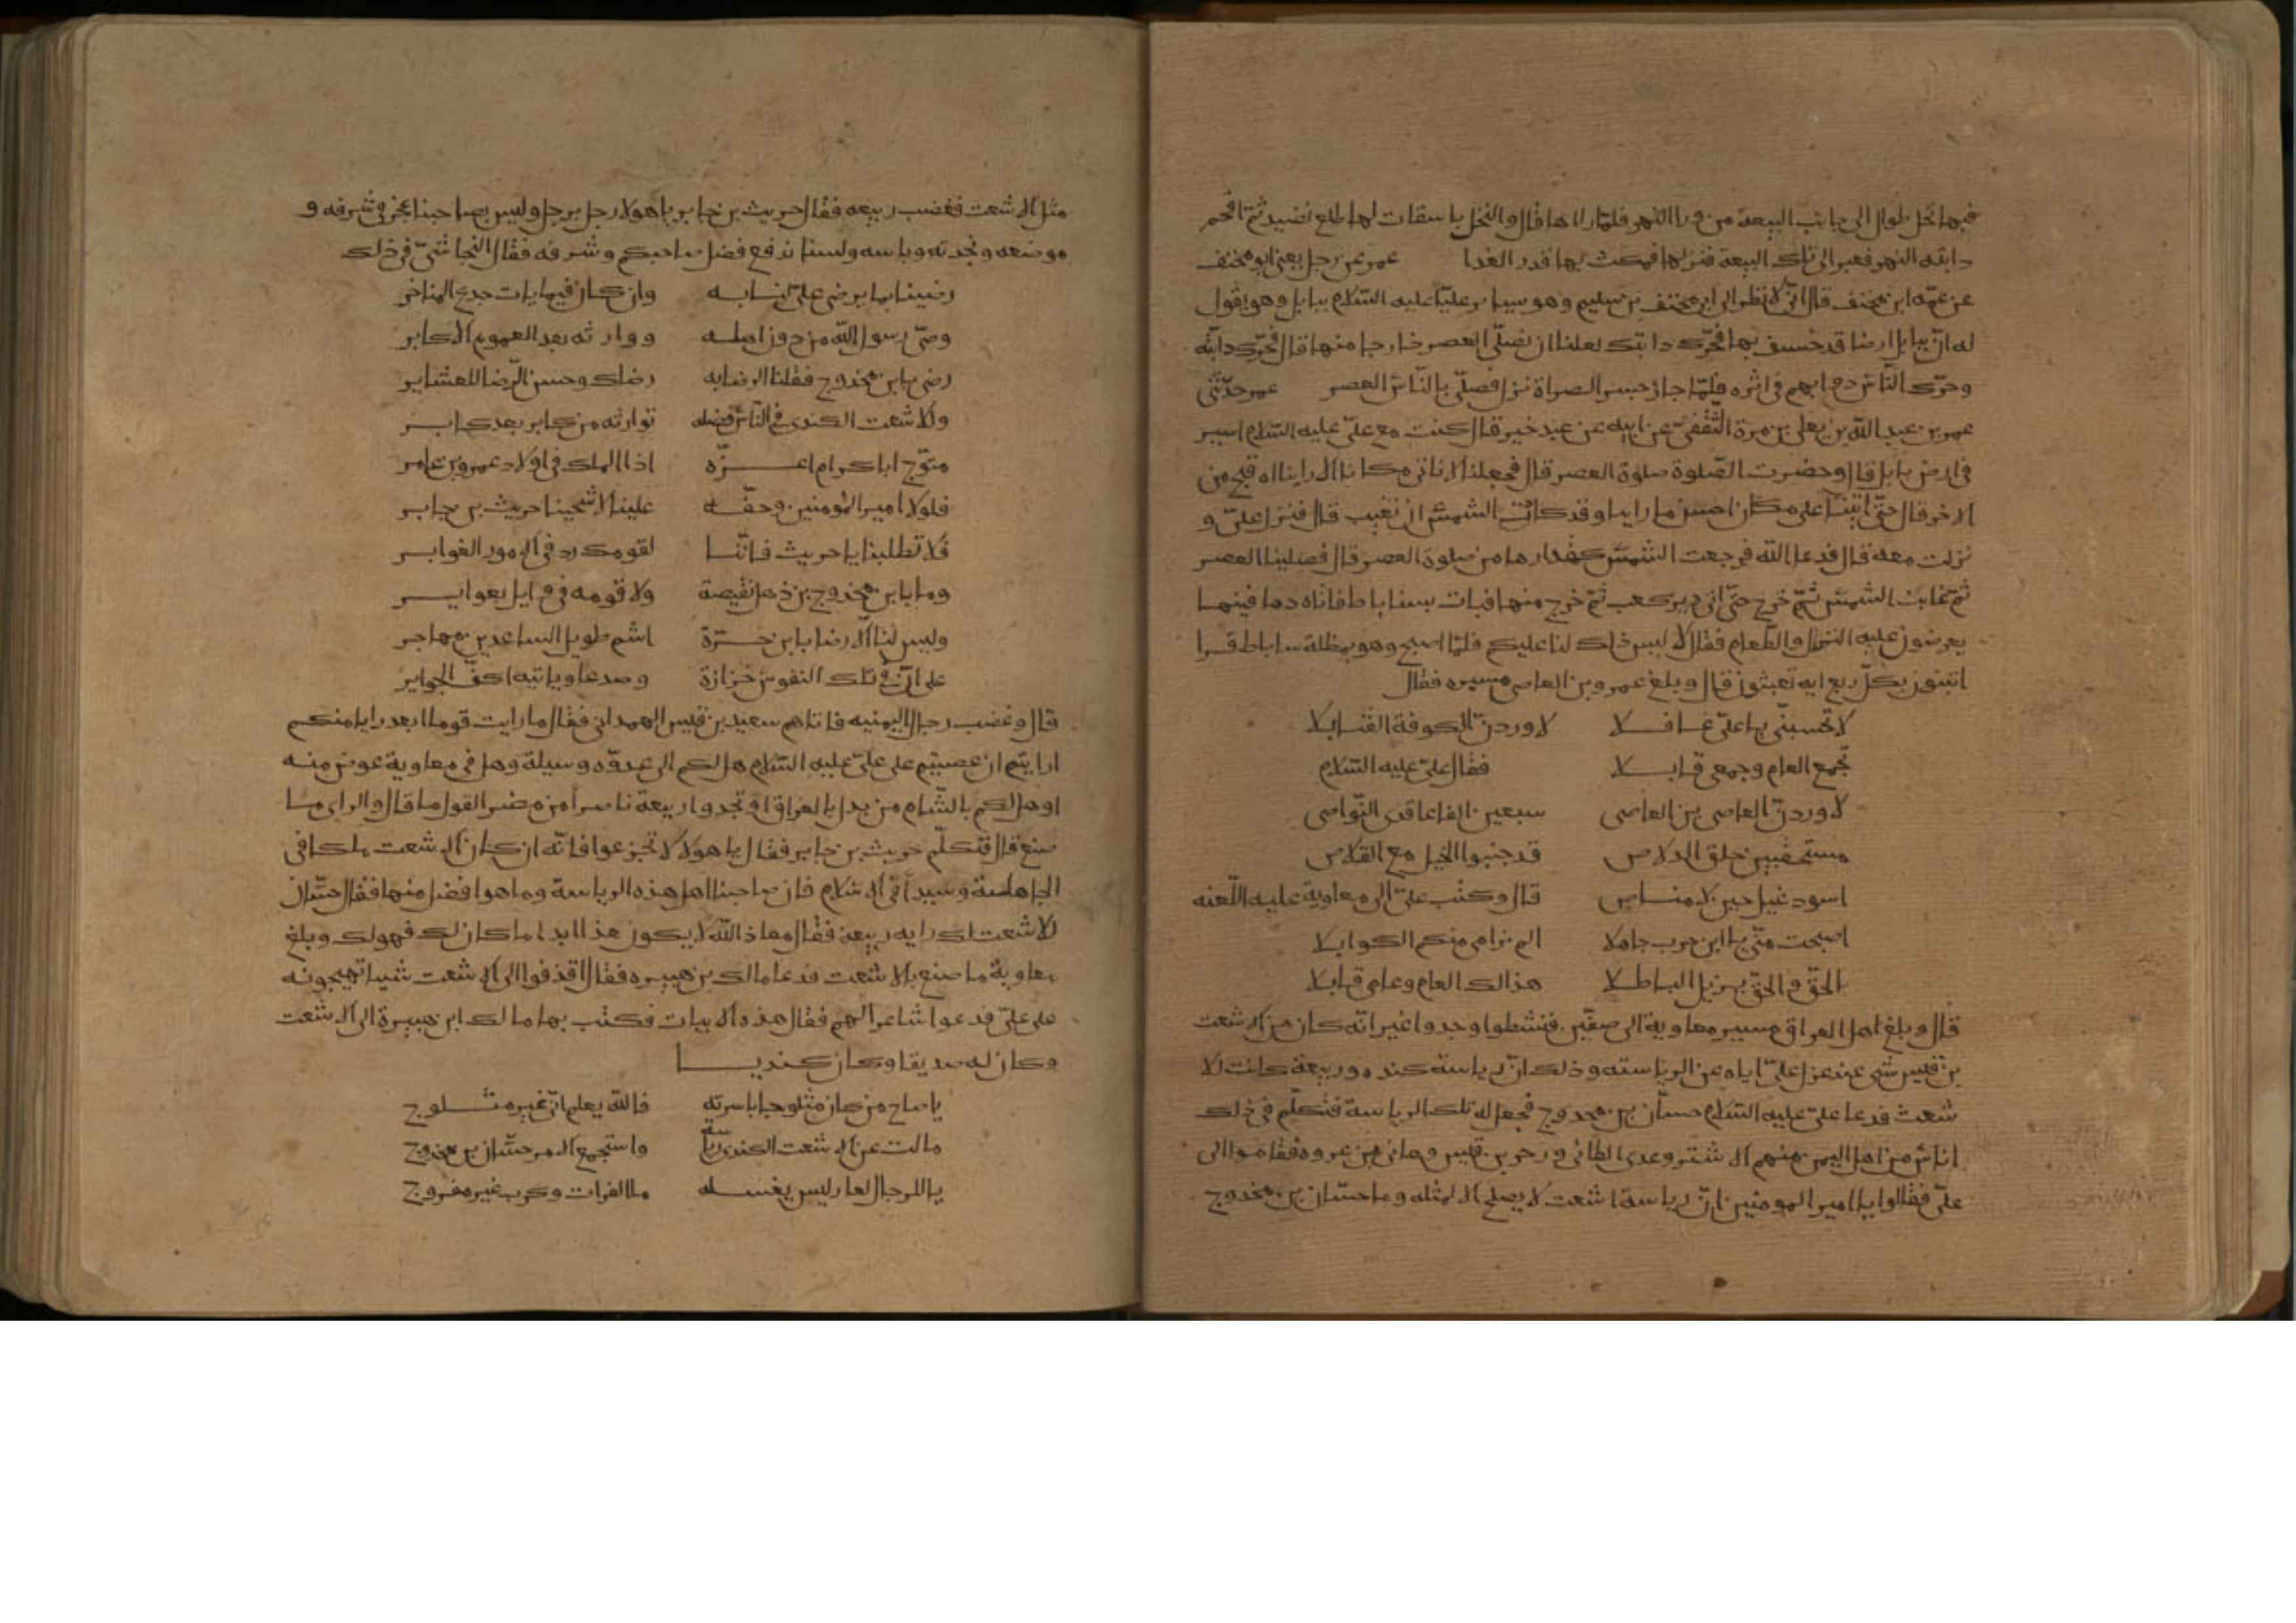 فيها نخل طوال الى جانب البيعة من ورا النهر فلما راها قال والنخل باسقات لها طلع نضيد ثم اقحم
دابته النهر فعبر الى تلك البيعة فنزلها فمكث بها قدر الغدا عمر عن رجل يعنى ابو مخنف
عن عمّه ابن مخنف قال انّى لانظر الى ابى مخنف بن سليم وهو يساير عليّا عليه السّلام ببابل وهو يقول
له انّ ببابل ارضا قد خسف بها فحرّك دابتك لعلنا ان نصلّى العصر خارجا منها قال فحرّك دابّته
وحرّك النّاس دوابهم فى اثره فلمّا جاز جسر الصراة نزل فصلّى بالنّاس العصر عمر حدّثنى
عمر بن عبد اللّه بن يعلى بن مرة الثّقفىّ عن ابيه عن عبد خير قال كنت مع علىّ عليه السّلام اسير
فى ارض بابل قال وحضرت الصّلوة صلوة العصر قال فجعلنا لا ناتى مكانا الا رايناه اقبح من
الاخر قال حتّى اتينا على مكان احسن ما راينا وقد كادت الشمس ان تغيب قال فنزل علىّ و
نزلت معه قال فدعا اللّه فرجعت الشمس كمقدارها من صلوة العصر قال فصلينا العصر
ثم غابت الشمس ثمّ خرج حتّى اتى دير كعب ثمّ خرج منها فبات بساباط فاتاه دهاقينها
يعرضون عليه النزل والطّعام فقال لا ليس ذلك لنا عليكم فلمّا اصبح وهو بمظلة ساباط قرا
اتبنون بكلّ ريع ايه تعبثون قال وبلغ عمرو بن العاص مسيره فقال
لا تحسبنّى يا علىّ غافلا لاوردنّ الكوفة القنابلا
بجمع العام وجمعى قابلا فقال علىّ عليه السّلام
لاوردنّ العاصى بن العاصى سبعين الفا عاقدى النّواصى
مستحقبين حلق الدلاص قد جنبوا الخيل مع القلاص
اسود غيل حين لا مناص قال وكتب علىّ الى معاوية عليه اللّعنه
اصبحت منّى يا ابن حرب جاهلا ان لم نرامى منكم الكواهلا
بالحقّ والحقّ يزيل الباطلا هذا لك العام وعامى قابلا
قال وبلغ اهل العراق مسير معاوية الى صفّين فنشطوا وجدوا غير انّه كان من الاشعث
بن قيس شى عند عزل علىّ اياه عن الرياسته وذلك انّ رياسة كنده وربيعة كانت للا
شعث فدعا علىّ عليه السّلام حسّان بن مخدوج فجعل له تلك الرياسة فتكلّم فى ذلك
اناس من اهل اليمن منهم الاشتر وعدى الطائى وزحر بن قيس وهانى بن عروه فقاموا الى
علىّ فقالوا يا امير المومنين انّ رياسة اشعث لا يصلح الا لمثله وما حسّان بن مخدوج
مثل الاشعث فغضب ربيعه فقال حريث بن جابر يا هولا رجل برجل وليس بصاحبنا عجز فى شرفه و
موضعه ونجدته وباسه ولسنا ندفع فضل صاحبكم وشرفه فقال النجاشىّ فى ذلك
رضينا بما يرضى علىّ لنا به وان كان فيما يات جدع المناخر
وصىّ رسول اللّه من دون اهله ووارثه بعد العموم الاكابر
رضى بابن مخدوج فقلنا الرضا به رضاك وحسن الرّضا للعشاير
وللاشعث الكندى فى النّاس فضله توارثه من كابر بعد كابر
متوّج اباء كرام اعزّه اذا الملك فى اولاد عمرو بن عامر
فلولا امير المومنين وحقّه علينا لاشجينا حريث بن جابر
فلا تطلبنا يا حريث فانّنا لقومك رد فى الامور الغوابر
وما بابن مخدوج بن ذهل نقيصة ولا قومه فى وايل بعواير
وليس لنا الّا الرضا بابن حرّة اشم طويل الساعدين مهاجر
على انّ فى تلك النفوس حزازة وصدعا وياتيه اكف الجواير
قال وغضب رجال اليمنيه فاتاهم سعيد بن قيس الهمدانى فقال ما رايت قوما ابعد رايا منكم
ارايتم ان عصيتم على علىّ عليه السّلام هل لكم الى عدوّه وسيلة وهل فى معاوية عوض منه
او هل لكم بالشّام من بدل بالعراق او تجدوا ربيعة ناصرا من مضر القول ما قال والراى ما
صنع قال فتكلّم حريث بن جابر فقال يا هولا لا تجزعوا فانّه ان كان الاشعث ملكا فى
الجاهلية وسيدا فى الاسلام فان صاحبنا اهل هذه الرياسة وما هو افضل منها فقال حسّان
للاشعث لك رايه ربيعة فقال معاذ اللّه لا يكون هذا ابدا ما كان لك فهو لك وبلغ
معاوية ما صنع بالاشعث فدعا مالك بن هبيره فقال اقذفوا الى الاشعث شيا تهيجونه
على علىّ فدعوا شاعرا لهم فقال هذه الابيات فكتب بها مالك ابن هبيرة الى الاشعث
وكان له صديقا وكان كنديا
يا صاح من كان مثلوجا باسرته فاللّه يعلم انّى غير مثلوج
مالت عن الاشعث الكندى رياسته واستجمع الامر حسّان بن مخدوج
يا للرجال لعار ليس يغسله ما الفرات وكرب غير مفروج